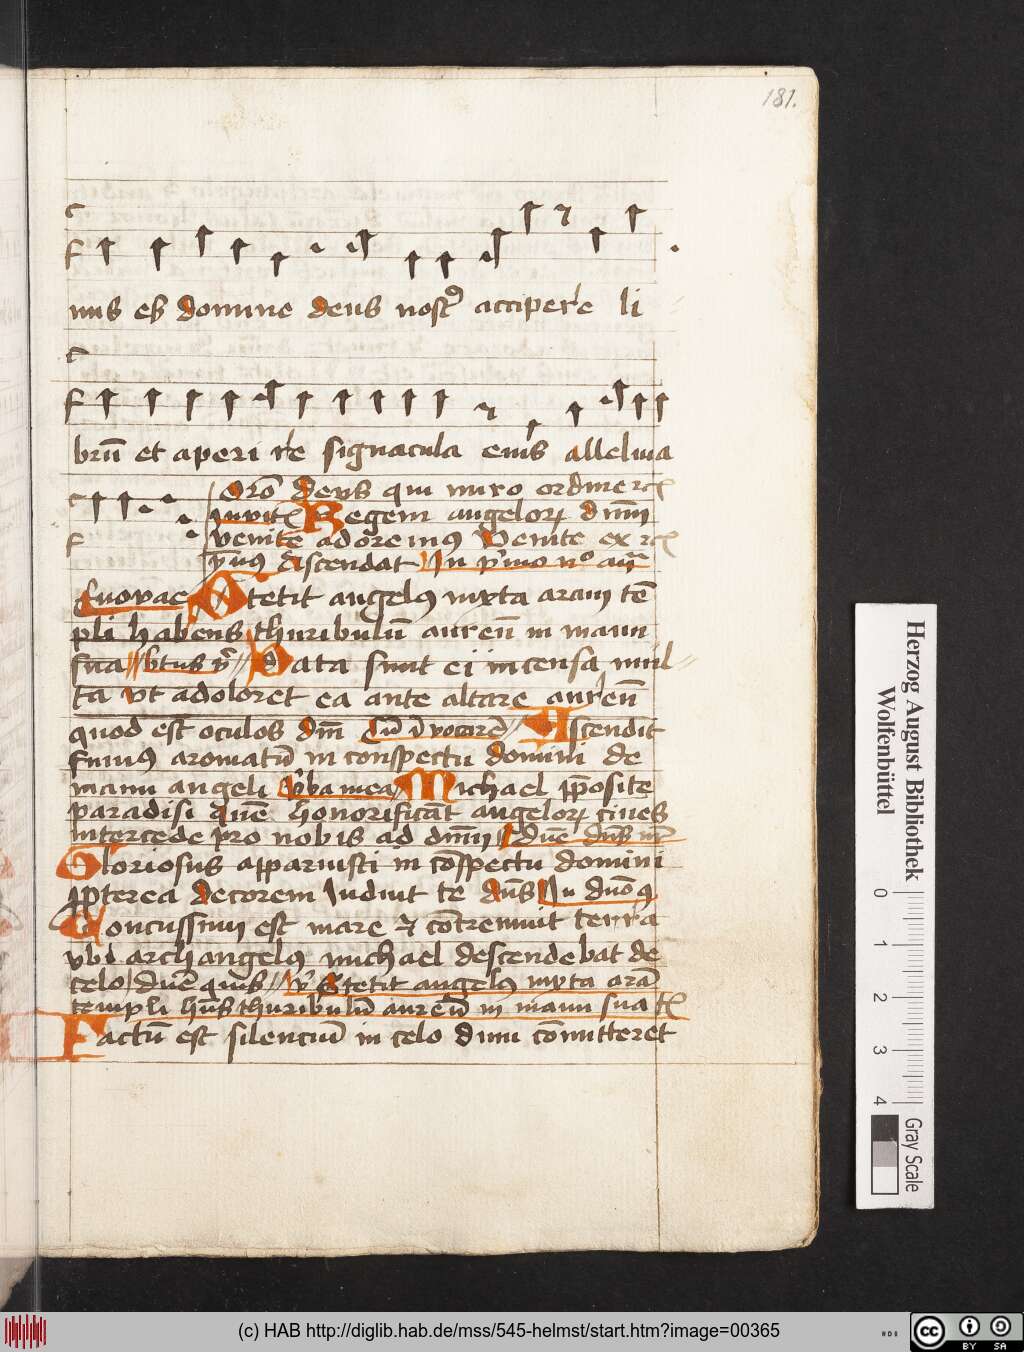 181.
c
f
nus es domine deus nostꝰ accipere li
c
f
brū et aperire signacula eius alleluia
c
Orō Deus qui miro ordine
f
Regem angelorꝝ dnm
venite adoremus Venite ex
discendat In pͥmo nͦ añ
Euovae Stetit angelꝰ iuxta aram tē
pli habens thuribulū aureū in manu
sua btus vͥ Data sunt ei incensa mul
ta vt adoloret ea ante altare aureū
quod est oculos dm̄ Cū īvocarē Ascendit
fumꝰ aromatū in conspectu domini de
manu angeli vͥba mea Michael p̄posite
paradisi quē honorificāt angelorꝝ ciues
intercede pro nobis ad dnm
Gloriosus apparuisti in cōspectu domini
ꝓpterea decorem Induit te dn̄s In dnō
Concussum est mare et cōtremuit terra
vbi archangelꝰ michael descendebat de
celo dnē quis vͥ Stetit angelꝰ iuxta arā
templi hn̄s thuribulū aureū in manu sua
Factū est silenciū in celo dum cōmitteret
Herzog August Bibliothek
Wolfenbüttel
0 1 2 3 4
Gray Scale
(c) HAB http://diglib.hab.de/mss/545-helmst/start.htm?image=00365
cc BY SA